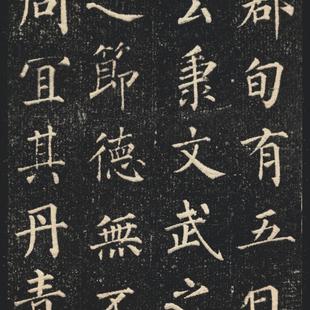 郡旬有五日
公秉文武之
之節德無不
同冝其丹青